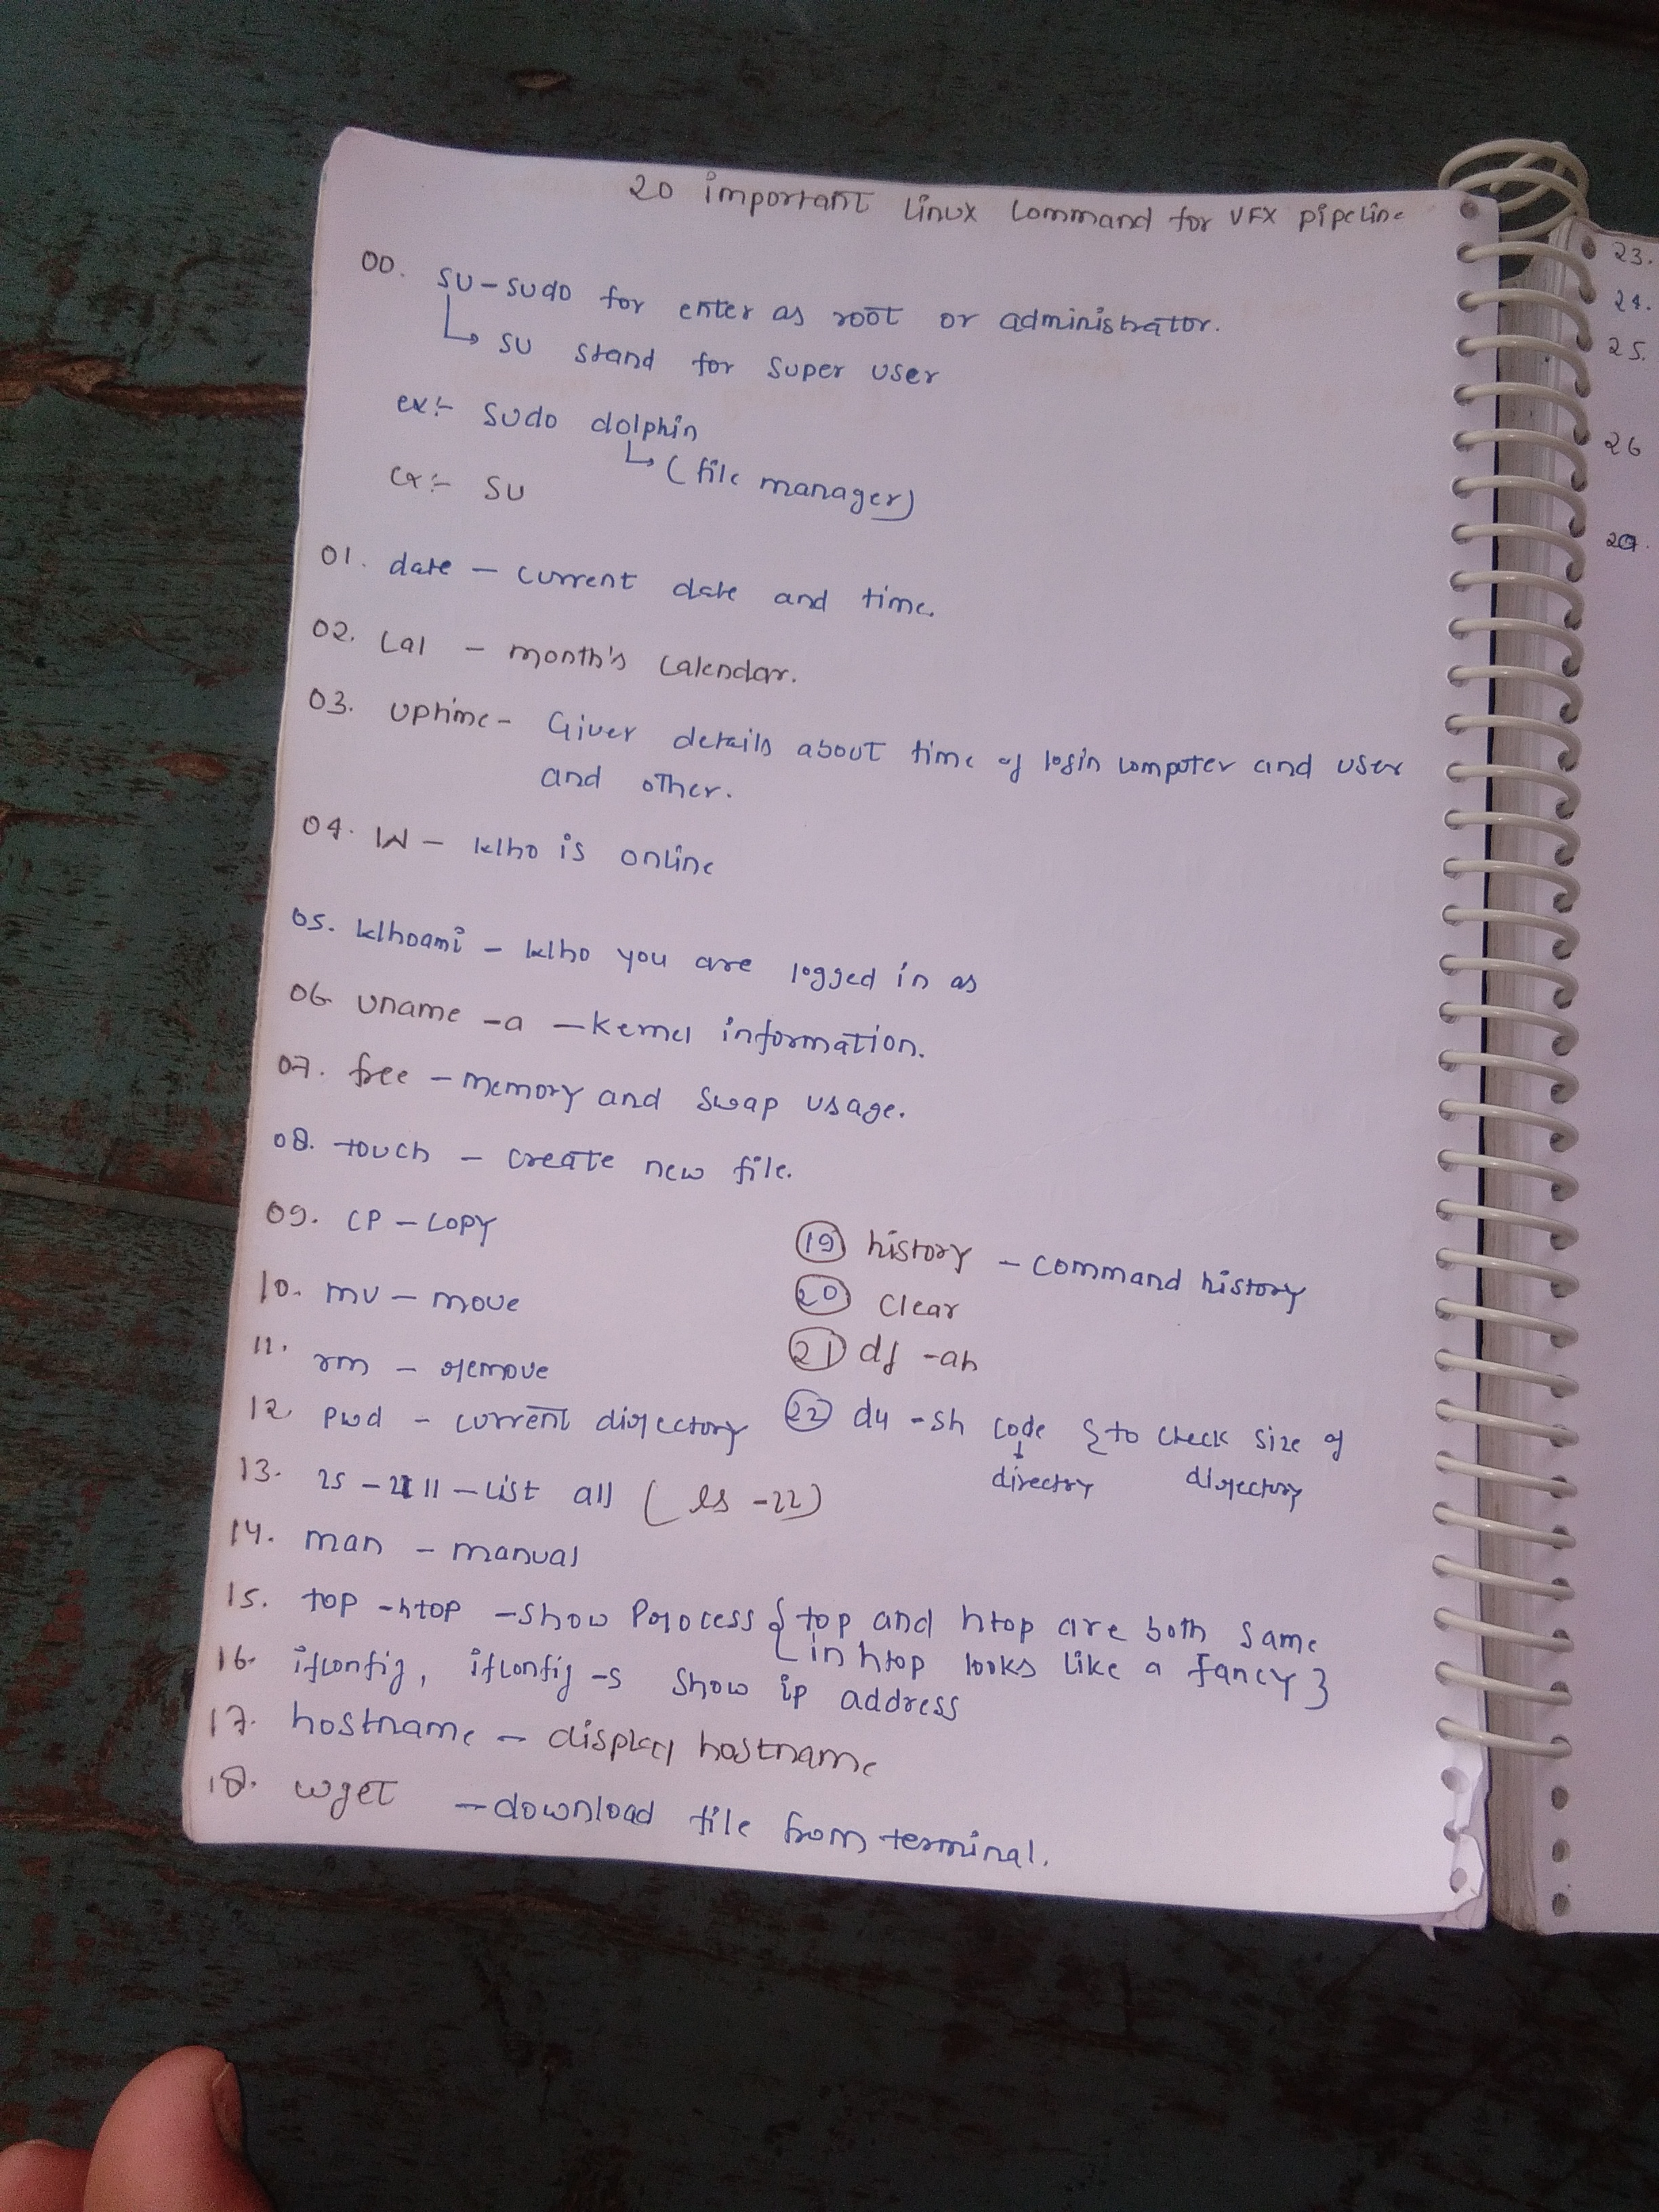 20 important Linux Command for VFX pipeline
00. su - sudo for enter as root or administrator.
↳ su stand for super user
ex:- sudo dolphin
↳ (file manager)
ex:- su
01. date - current date and time.
02. Cal - month's Calendar.
03. uptime - Giver details about time of login computer and user
and other.
04. W - Who is online
05. Whoami - Who you are logged in as
06. uname -a - Kernel information.
07. free - memory and swap usage.
08. touch - create new file.
09. CP - Copy
10. mv - move
11. rm - remove
12. pwd - current directory
13. ls - ll - List all (ls -ll)
14. man - manual
15. top - htop - show Process { top and htop are both same
in htop looks like a fancy }
16. ifconfig, ifconfig -s show ip address
17. hostname - display hostname
18. wget - download file from terminal.
19 history - command history
20 Clear
21 df -ah
22 du -sh code { to check size of
directory directory
23.
24.
25.
26